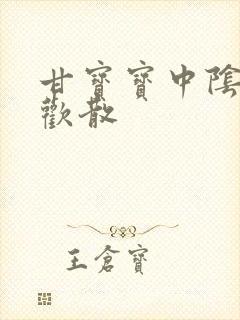 甘寶寶中陰
歡散
王倉寶